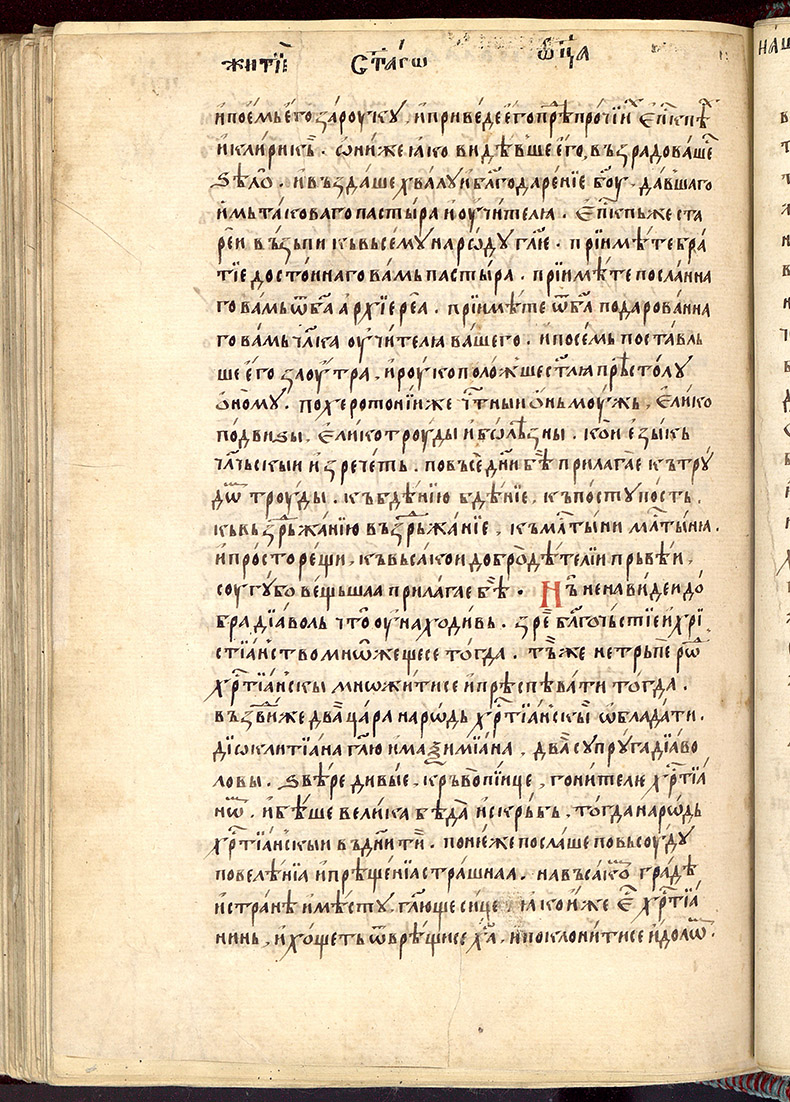 житїе с҃таго ѡ҃ца
и҆пое́мь є҆го̀ за́роукꙋ . и҆приве́де є҆го прⷣѣ про́чїи ⷯ є҆пⷭ҇кпѣ ⷯ
и҆кли́рикѣ . ѻ҆ни́же ꙗ҆́ко ви́дѣвше є҆го , въꙁра́доваⷲ҇ше
ѕѣлѡ̀ . и҆въꙁда́ше хвалꙋ̀ и҆бл҃годаре́нїе б҃оу . да́вшаго
и҆́мь тако́ваго па́стыра и҆оу҆чи́телꙗ . є҆пⷭ҇кпь же ста
ре́и въꙁьпѝ къвьсе́мꙋ наро́дꙋ гл҃ѥ . прїимѣ́те бра́
тїе досто́ннаго ва́мь па́стыра . прїимѣ́те посла́нна
го ва́мь ѿб҃га а҆рхїере́а . прїимѣ́те ѿб҃га подарова́нна
го ва́мь чл҃ка оу҆чи́телꙗ ва́шего . и҆посе́мь поста́вль
ше є҆го̀ ꙁаоу҆́тра . и҆роукополо́жше ст҃лꙗ прѣсто́лꙋ
ѻ҆́номꙋ . похерото́нїи же чⷭ҇тныи ѻ҆́нь моу́жь , є҆ли́ко
по́двиꙁы , є҆ли́ко троу́ды и҆бо́лѣꙁны . ко́и є҆ꙁы́кь
чл҃чьскыи и҆ꙁрече́ть . повьсе́дн҃и бѣ̀ прилага́е къ трꙋ́
дѡⷨ троу́ды . къбдѣ́нїю бдѣ́нїе , къпо́стꙋ по́сть ,
къвьꙁдрьжа́нїю въꙁдрьжа́нїе , къмлⷭ҇тыни млⷭ҇ты́нꙗ .
и҆про́сто рещѝ , къвьса́кои добродѣ́тели прьвѣ́и ,
соугꙋ́бо ве́щьшаа прилага́е бѣ̀ . Нъ̀ ненави́деи до́
бра дїа́воль что̀ оу҆находи́вь . ꙁрѐ бл҃гочь́стїе и҆хрї
стїа́нство мнѡ́жещесе тогда̀ . тѣ́мже не трьпѐ рѡⷣ
хрⷭ҇тїа́нскы мнѡ́житисе и҆прѣспѣва́ти тогда̀ .
въꙁдви́же два̀ ца́ра наро́дь хрⷭ҇тїа́нскыⷨ ѡ҆блада́ти .
дїѡклитїа́на гл҃ю и҆маѯимїа́на , два̀ сꙋпрꙋ́га дїа́во
ловы . ѕвѣ́ре ди́вые , крьвопї́нце , гони́телю хрⷭ҇тїа́
нѡⷨ . и҆бѣ́ше вели́ка бѣда̀ и҆скрь́бь , тогда̀ наро́дь
хрⷭ҇тїа́нскыи въдн҃и ти́и . поне́же посла́ше повьсоу́дꙋ
повелѣ́нїа и҆прѣще́нїа стра́шнаа . навъса́кѡⷨ гра́дѣ
и҆стра́нѣ и҆мѣ́стꙋ , гл҃юще си́це ꙗ҆ко и҆́же є҆ⷭ҇ хрⷭ҇тїа́
нинь , и҆хо́щеть ѿврѣ́щисе х҃а , и҆поклони́тисе и҆́долѡⷨ .